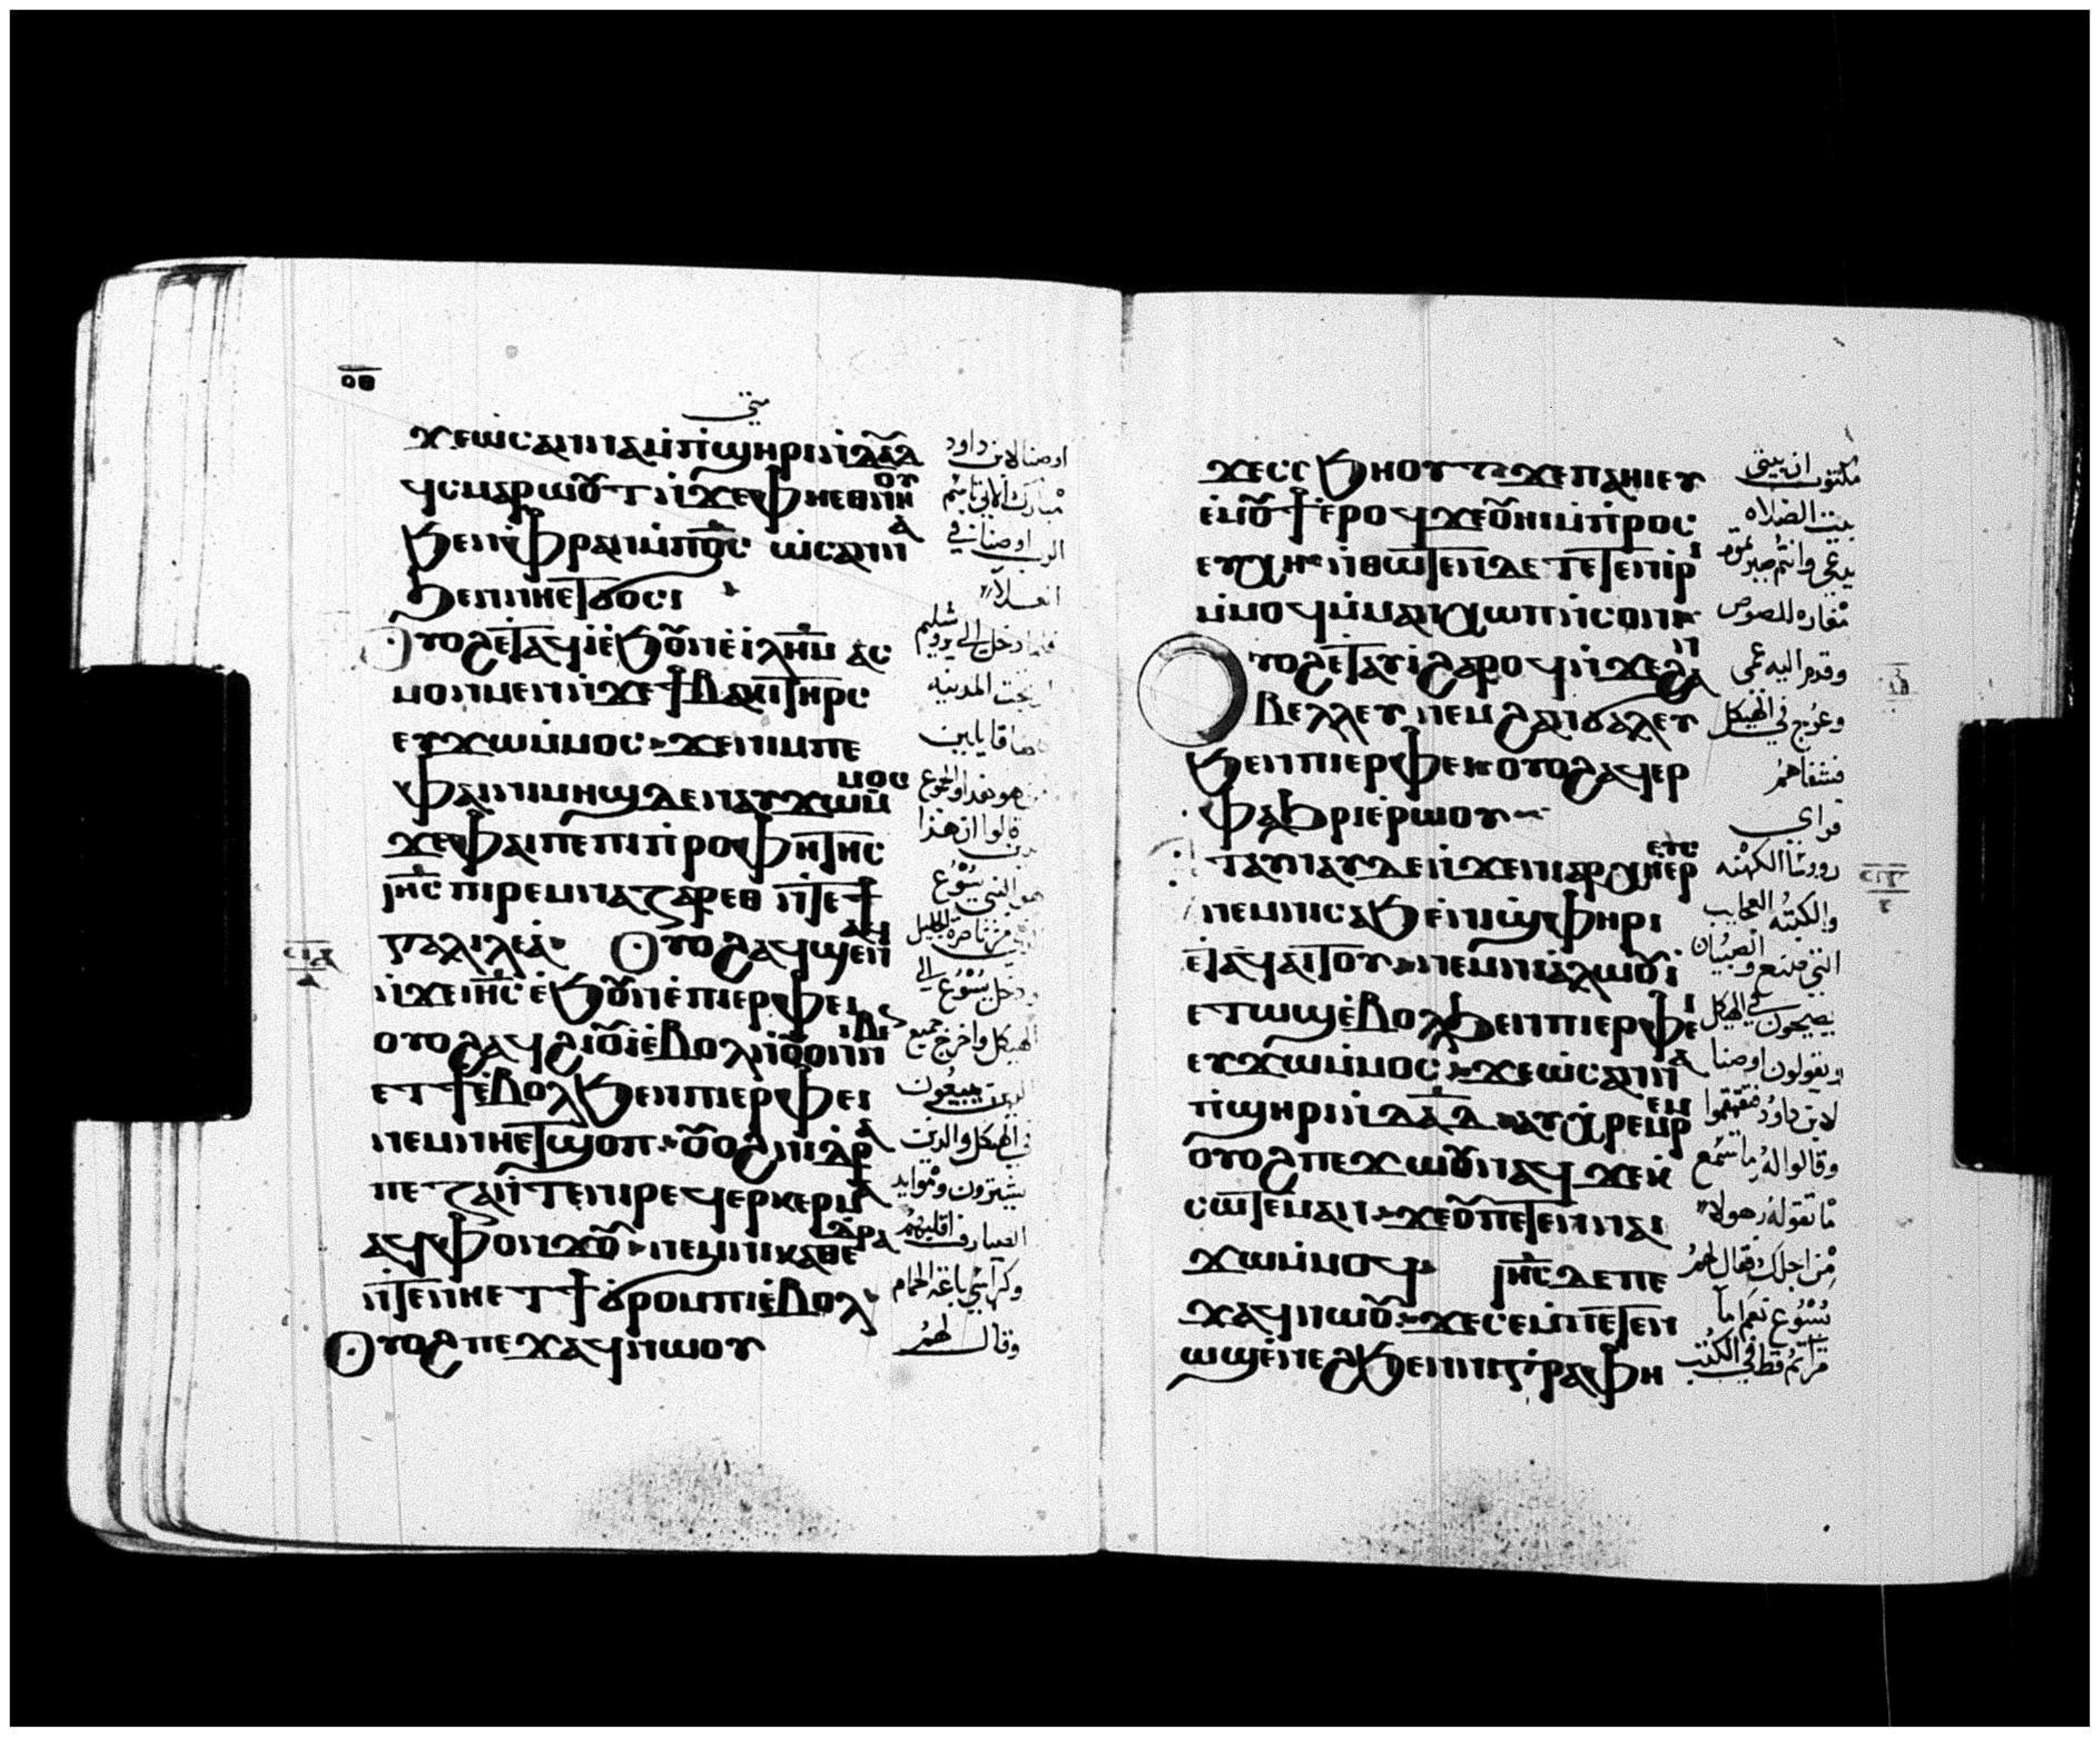 ⲟⲑ
متي
ϫⲉⲱ̀ⲥⲁⲛⲛⲁⲙ̀ⲡ̀ϣⲏⲣⲓⲛ̀ⲇⲁ̅ⲇ̅
ϥⲥⲙⲁⲣⲱⲟⲩⲧⲛ̀ϫⲉⲫⲏⲉⲑⲛⲏⲟⲩ
ϧⲉⲛⲫ̀ⲣⲁⲛⲙ̀ⲡⲟ̅ⲥ̅ ⲱ̀ⲥⲁⲛⲛⲁ̀
ϧⲉⲛⲛⲏⲉⲧϭⲟⲥⲓ
Ⲟⲩⲟϩⲉⲧⲁϥⲓ̀ⲉ̀ϧⲟⲩⲛⲉ̀ⲓ̀ⲗ̅ⲏ̅ⲙ̅ ⲁⲥ
ⲙⲟⲛⲙⲉⲛⲛ̀ϫⲉϯⲃⲁⲕⲓⲧⲏⲣⲥ
ⲉⲩϫⲱⲙ̀ⲙⲟⲥ ϫⲉⲛⲓⲙⲡⲉ
ⲫⲁⲓⲛⲓⲙⲏϣⲇⲉⲛⲁⲩϫⲱⲙ̀ⲙⲟⲥ
ϫⲉⲫⲁⲓⲡⲉⲡⲓⲡ̀ⲣⲟⲫⲏⲧⲏⲥ
ⲓⲏ̅ⲥ̅ ⲡⲓⲣⲉⲙⲛⲁⲍⲁⲣⲉⲑ ⲛ̀ⲧⲉϯ
ⲅⲁⲗⲓⲗⲉⲁ̀ Ⲟⲩⲟϩⲁϥϣⲉⲛⲁϥ
ⲛ̀ϫⲉⲓⲏ̅ⲥ̅ ⲉ̀ϧⲟⲩⲛⲉ̀ⲡⲓⲉⲣⲫⲉⲓ
ⲟⲩⲟϩⲁϥϩⲓⲟⲩⲓ̀ⲉ̀ⲃⲟⲗⲛ̀ⲟⲩⲟⲛⲛⲓⲃⲉⲛ
ⲉⲧϯⲉ̀ⲃⲟⲗϧⲉⲛⲡⲓⲉⲣⲫⲉⲓ
ⲛⲉⲙⲛⲏⲉⲧϣⲱⲡ ⲟⲩⲟϩⲛⲓⲧⲣⲁ
ⲡⲉⲍⲁⲛ̀ⲧⲉⲛⲓⲣⲉϥⲉⲣⲕⲉⲣⲙⲁ
ⲁϥⲫⲟⲛϫⲟⲩ ⲛⲉⲙⲛⲓⲕⲁⲑⲉⲇⲣⲁ
ⲛ̀ⲧⲉⲛⲏⲉⲧϯϭⲣⲟⲙⲡⲓⲉ̀ⲃⲟⲗ
Ⲟⲩⲟϩⲡⲉϫⲁϥⲛⲱⲟⲩ
اوصنا لابن داود
مبارك الاتي باسم
الرب اوصنا في
العلا
فلما دخل الي يروشليم
ارتجت المدينه
كلها قايلين
من هو هذا والجموع
قالوا ان هذا
هو النبي يسوع
الذي من ناصرة الجليل
ودخل يسوع الي
الهيكل واخرج جميع
الذين يبيعون
في الهيكل والذين
يشترون وموايد
الصيارف اقلبهم
وكراسي باعه الحمام
وقال لهم
ϫⲉⲥⲥϧⲏⲟⲩⲧ ϫⲉⲡⲁⲏⲓⲉⲩ
ⲉ̀ⲙⲟⲩϯⲉ̀ⲣⲟϥϫⲉⲟⲩⲏⲓⲙ̀ⲡ̀ⲣⲟⲥ
ⲉⲩⲭⲏ ⲛ̀ⲑⲱⲧⲉⲛⲇⲉ ⲧⲉⲧⲉⲛⲓⲣⲓ
ⲙ̀ⲙⲟϥⲙ̀ⲙⲁⲛⲭⲱⲡⲛ̀ⲥⲟⲛⲓ
Ⲟⲩⲟϩⲉⲧⲁⲩⲓ̀ϩⲁⲣⲟϥⲛ̀ϫⲉϩⲁⲛ
ⲃⲉⲗⲗⲉⲩ ⲛⲉⲙϩⲁⲛϭⲁⲗⲉⲩ
ϧⲉⲛⲡⲓⲉⲣⲫⲉⲓ ⲟⲩⲟϩⲁϥⲉⲣ
ⲫⲁϧⲣⲓⲉ̀ⲣⲱⲟⲩ
ⲉⲧⲁⲩⲛⲁⲩⲇⲉⲛ̀ϫⲉⲛⲓⲁⲣⲭⲏⲉⲣⲉⲩⲥ
ⲛⲉⲙⲛⲓⲥⲁϧ ⲉ̀ⲛⲓϣ̀ⲫⲏⲣⲓ
ⲉ̀ⲧⲁϥⲁⲓⲧⲟⲩ ⲛⲉⲙⲛⲓⲁ̀ⲗⲱⲟⲩⲓ̀
ⲉⲧⲱϣⲉ̀ⲃⲟⲗϧⲉⲛⲡⲓⲉⲣⲫⲉⲓ
ⲉⲩϫⲱⲙ̀ⲙⲟⲥ ϫⲉⲱ̀ⲥⲁⲛⲛⲁ
ⲡ̀ϣⲏⲣⲓⲛ̀ⲇⲁ̅ⲇ̅ ⲁⲩⲭ̀ⲣⲉⲙⲣⲉⲙ
ⲟⲩⲟϩⲡⲉϫⲱⲟⲩⲛⲁϥ ϫⲉⲕ
ⲥⲱⲧⲉⲙⲁⲛ ϫⲉⲟⲩⲡⲉⲧⲉⲛⲁⲓ
ϫⲱⲙ̀ⲙⲟϥ ⲓⲏ̅ⲥ̅ ⲇⲉⲡⲉ
ϫⲁϥⲛⲱⲟⲩ ϫⲉⲥⲉⲙ̀ⲡⲉⲧⲉⲛ
ⲱϣⲉ̀ⲛⲉϩϧⲉⲛⲛⲓⲅ̀ⲣⲁⲫⲏ
مكتوب ان بيتي
بيت الصلاه
يدعى وانتم صيرتموه
مغاره للصوص
وقدم اليه عمي
وعرج في الهيكل
فشفاهم
فراي
روسا الكهنه
والكتبه العجايب
التي صنع والصبيان
يصيحون في الهيكل
ويقولون اوصنا
لابن داود فتقمقموا
وقالوا له ما تسمع
ما تقوله هولا
من اجلك فقال لهم
يسوع نعم اما
قراتم قط في الكتب